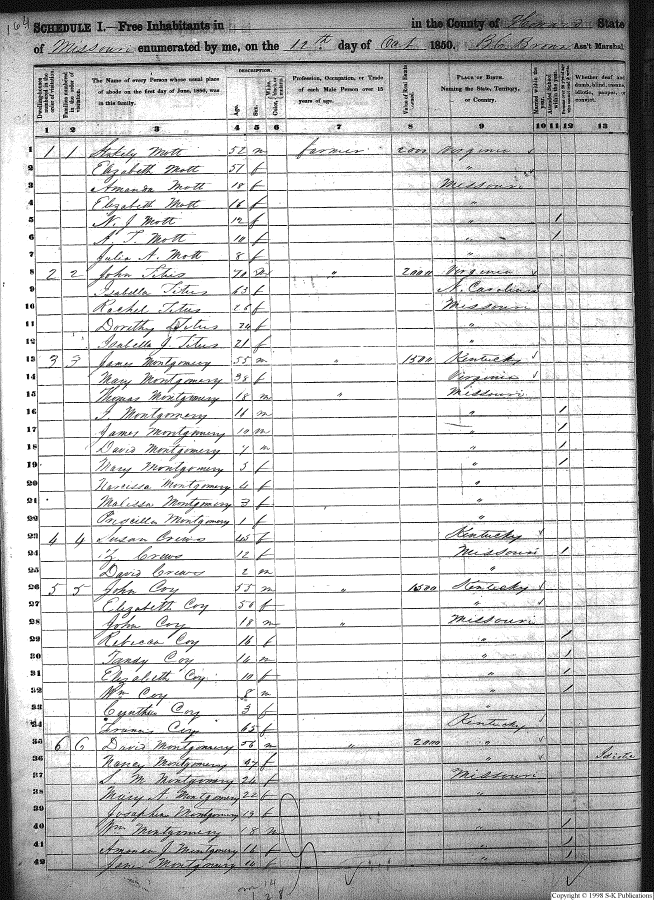 164
SCHEDULE I.—Free Inhabitants in in the County of Howard State
of Missouri enumerated by me, on the 12th day of Oct 1850. Ass't Marshal
Dwelling-houses numbered in the order of visitation.
Families numbered in the order of visitation.
The Name of every Person whose usual place of abode on the first day of June, 1850, was in this family.
DESCRIPTION.
Age.
Sex.
Color,
Profession, Occupation, or Trade of each Male Person over 15 years of age.
Value of Real Estate owned.
PLACE OF BIRTH.
Naming the State, Territory, or Country.
Married within the year.
Attended School within the year.
Whether deaf and dumb, blind, insane, idiotic, pauper, or convict.
1 2 3 4 5 6 7 8 9 10 11 12 13
1 1 1 Mott 52 m farmer 2000 Virginia
2 Elizabeth Mott 51 f "
3 Amanda Mott 18 f Missouri
4 Elizabeth Mott 16 f "
5 N. J. Mott 12 f " 1
6 A. T. Mott 10 f " 1
7 Julia A. Mott 8 f "
8 2 2 John Titus 70 m " 2000 Virginia
9 Isabella Titus 63 f N. Carolina
10 Rachel Titus 26 f Missouri
11 Dorothy Titus 24 f "
12 Isabella J. Titus 21 f "
13 3 3 James Montgomery 55 m " 1500 Kentucky
14 Mary Montgomery 38 f Virginia
15 Thomas Montgomery 18 m " Missouri
16 Montgomery 16 m " 1
17 James Montgomery 10 m " 1
18 David Montgomery 7 m " 1
19 Mary Montgomery 5 f " 1
20 Narcissa Montgomery 4 f "
21 Malissa Montgomery 3 f "
22 Priscilla Montgomery 1 f "
23 4 4 Susan Crews 45 f Kentucky
24 Crews 12 f Missouri 1
25 David Crews 2 m "
26 5 5 John Coy 55 m " 1500 Kentucky
27 Elizabeth Coy 50 f "
28 John Coy 18 m " Missouri
29 Rebecca Coy 16 f " 1
30 Tandy Coy 14 m " 1
31 Elizabeth Coy 10 f " 1
32 Wm Coy 8 m " 1
33 Cynthia Coy 3 f "
34 Coy 65 f Kentucky
35 6 6 David Montgomery 56 m " 2000 "
36 Nancy Montgomery 47 f " Idiotic
37 S. M. Montgomery 24 f Missouri
38 Mary A. Montgomery 22 f "
39 Josephine Montgomery 19 f "
40 Wm Montgomery 18 m " 1
41 Amanda J. Montgomery 16 f 1
42 Jane Montgomery 10 f " 1
Copyright © 1998 S-K Publications